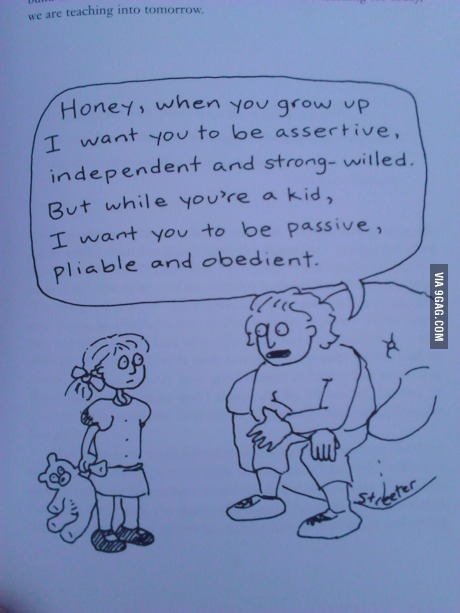 we are teaching into tomorrow.
Honey, when you grow up
I want you to be assertive,
independent and strong-willed.
But while you're a kid,
I want you to be passive,
pliable and obedient.
VIA 9GAG.COM
Streeter